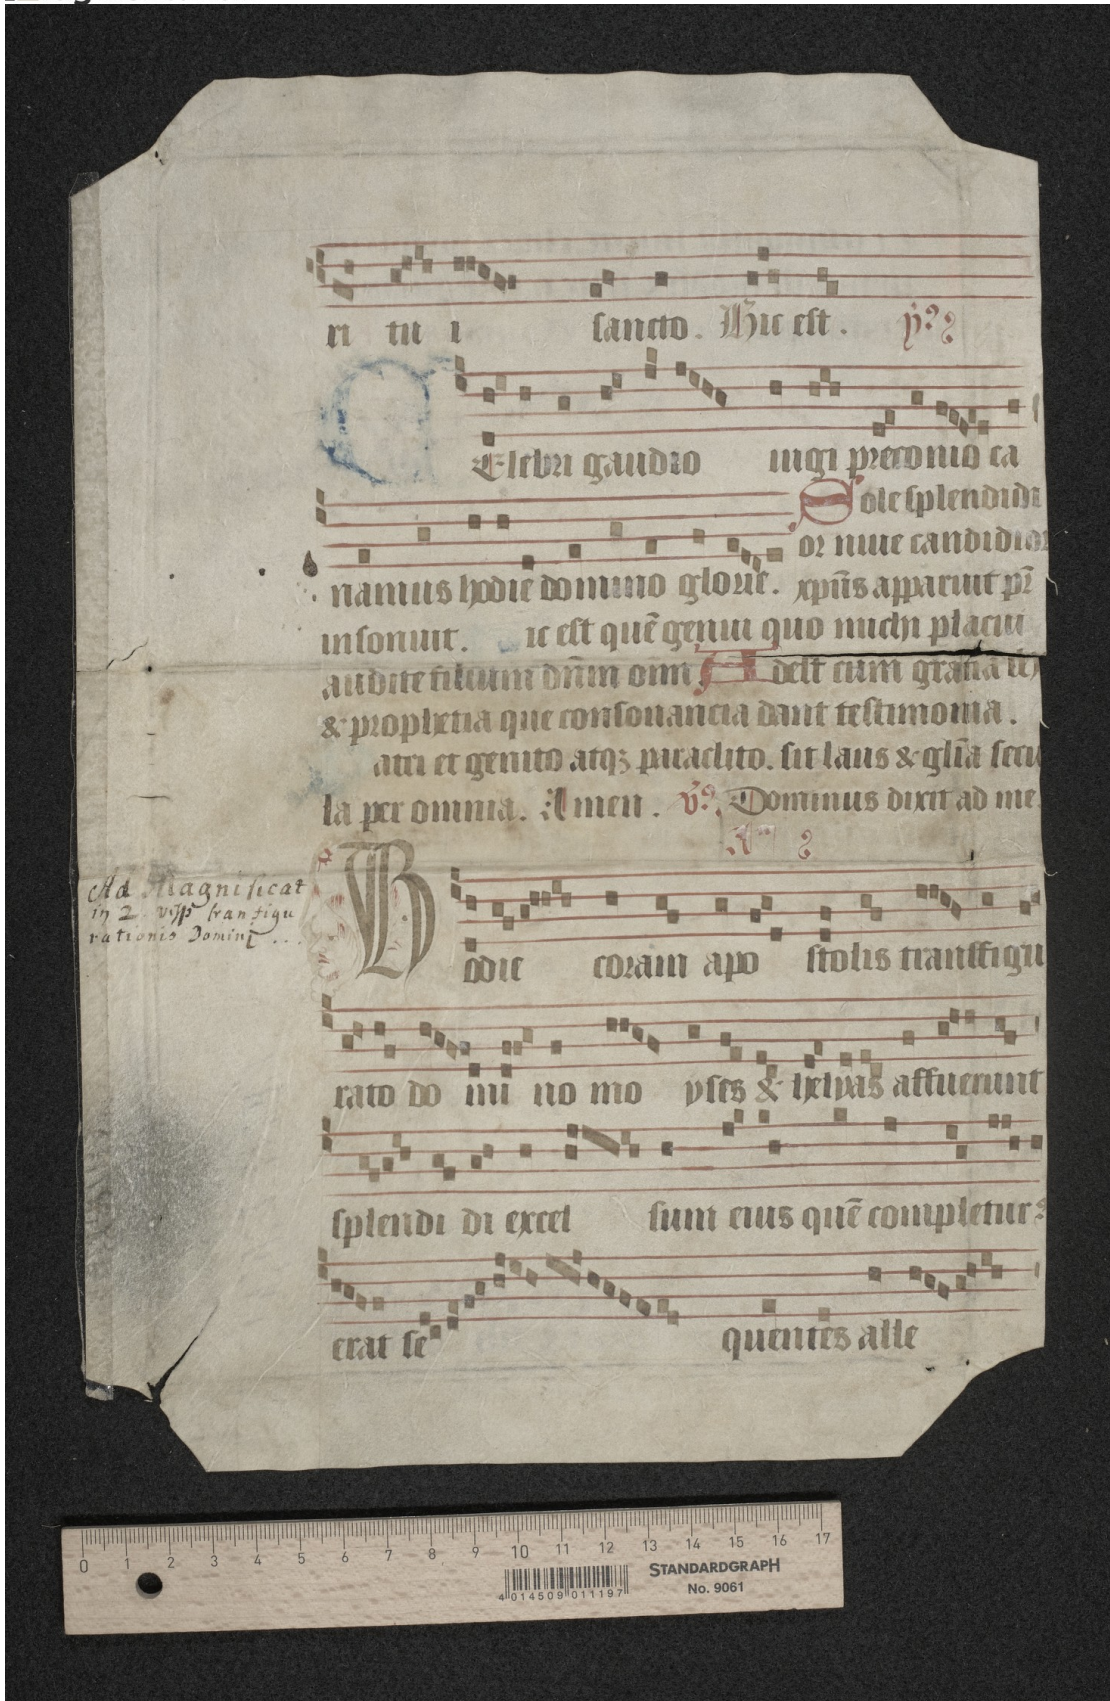 ri tu i sancto. Hic est. ꝟ?
CElebri gaudio iugi preconio ca
Sole splendidi
or niue candidior
namus hodie domino glorie. xpūs apparuit pr̄
insonuit. ic est quē genui quo michi placui
audite filium dn̄m omī Adest cum gratia
& prophetia que consonancia dant testimonia.
atri et genito atqꝫ paraclito. sit laus & glīa secu
la per omnia. Amen. ꝟ? Dominus dixit ad me
Ad Magnificat
in 2 vīsp transfigu
rationis Dominj ...
Hodie coram apo stolis transfigu
rato do mi no mo yses & helyas affuerunt
splendi di excel sum eius quē completur
erat se quentes alle
0 1 2 3 4 5 6 7 8 9 10 11 12 13 14 15 16 17
STANDARDGRAPH
No. 9061
4 014509 011197